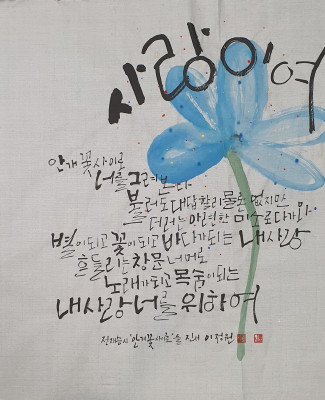 사랑이여
안개꽃 사이로
너를 그려본다
불러도 대답할리 물론 없지만
더러는 아련한 미소로 다가와
별이되고 꽃이되고 바다가되는 내사랑
흔들리는 창문 너머로
노래가되고 목숨이되는
내사랑 너를 위하여
시 '안개꽃 사이로' 쓴 이정원